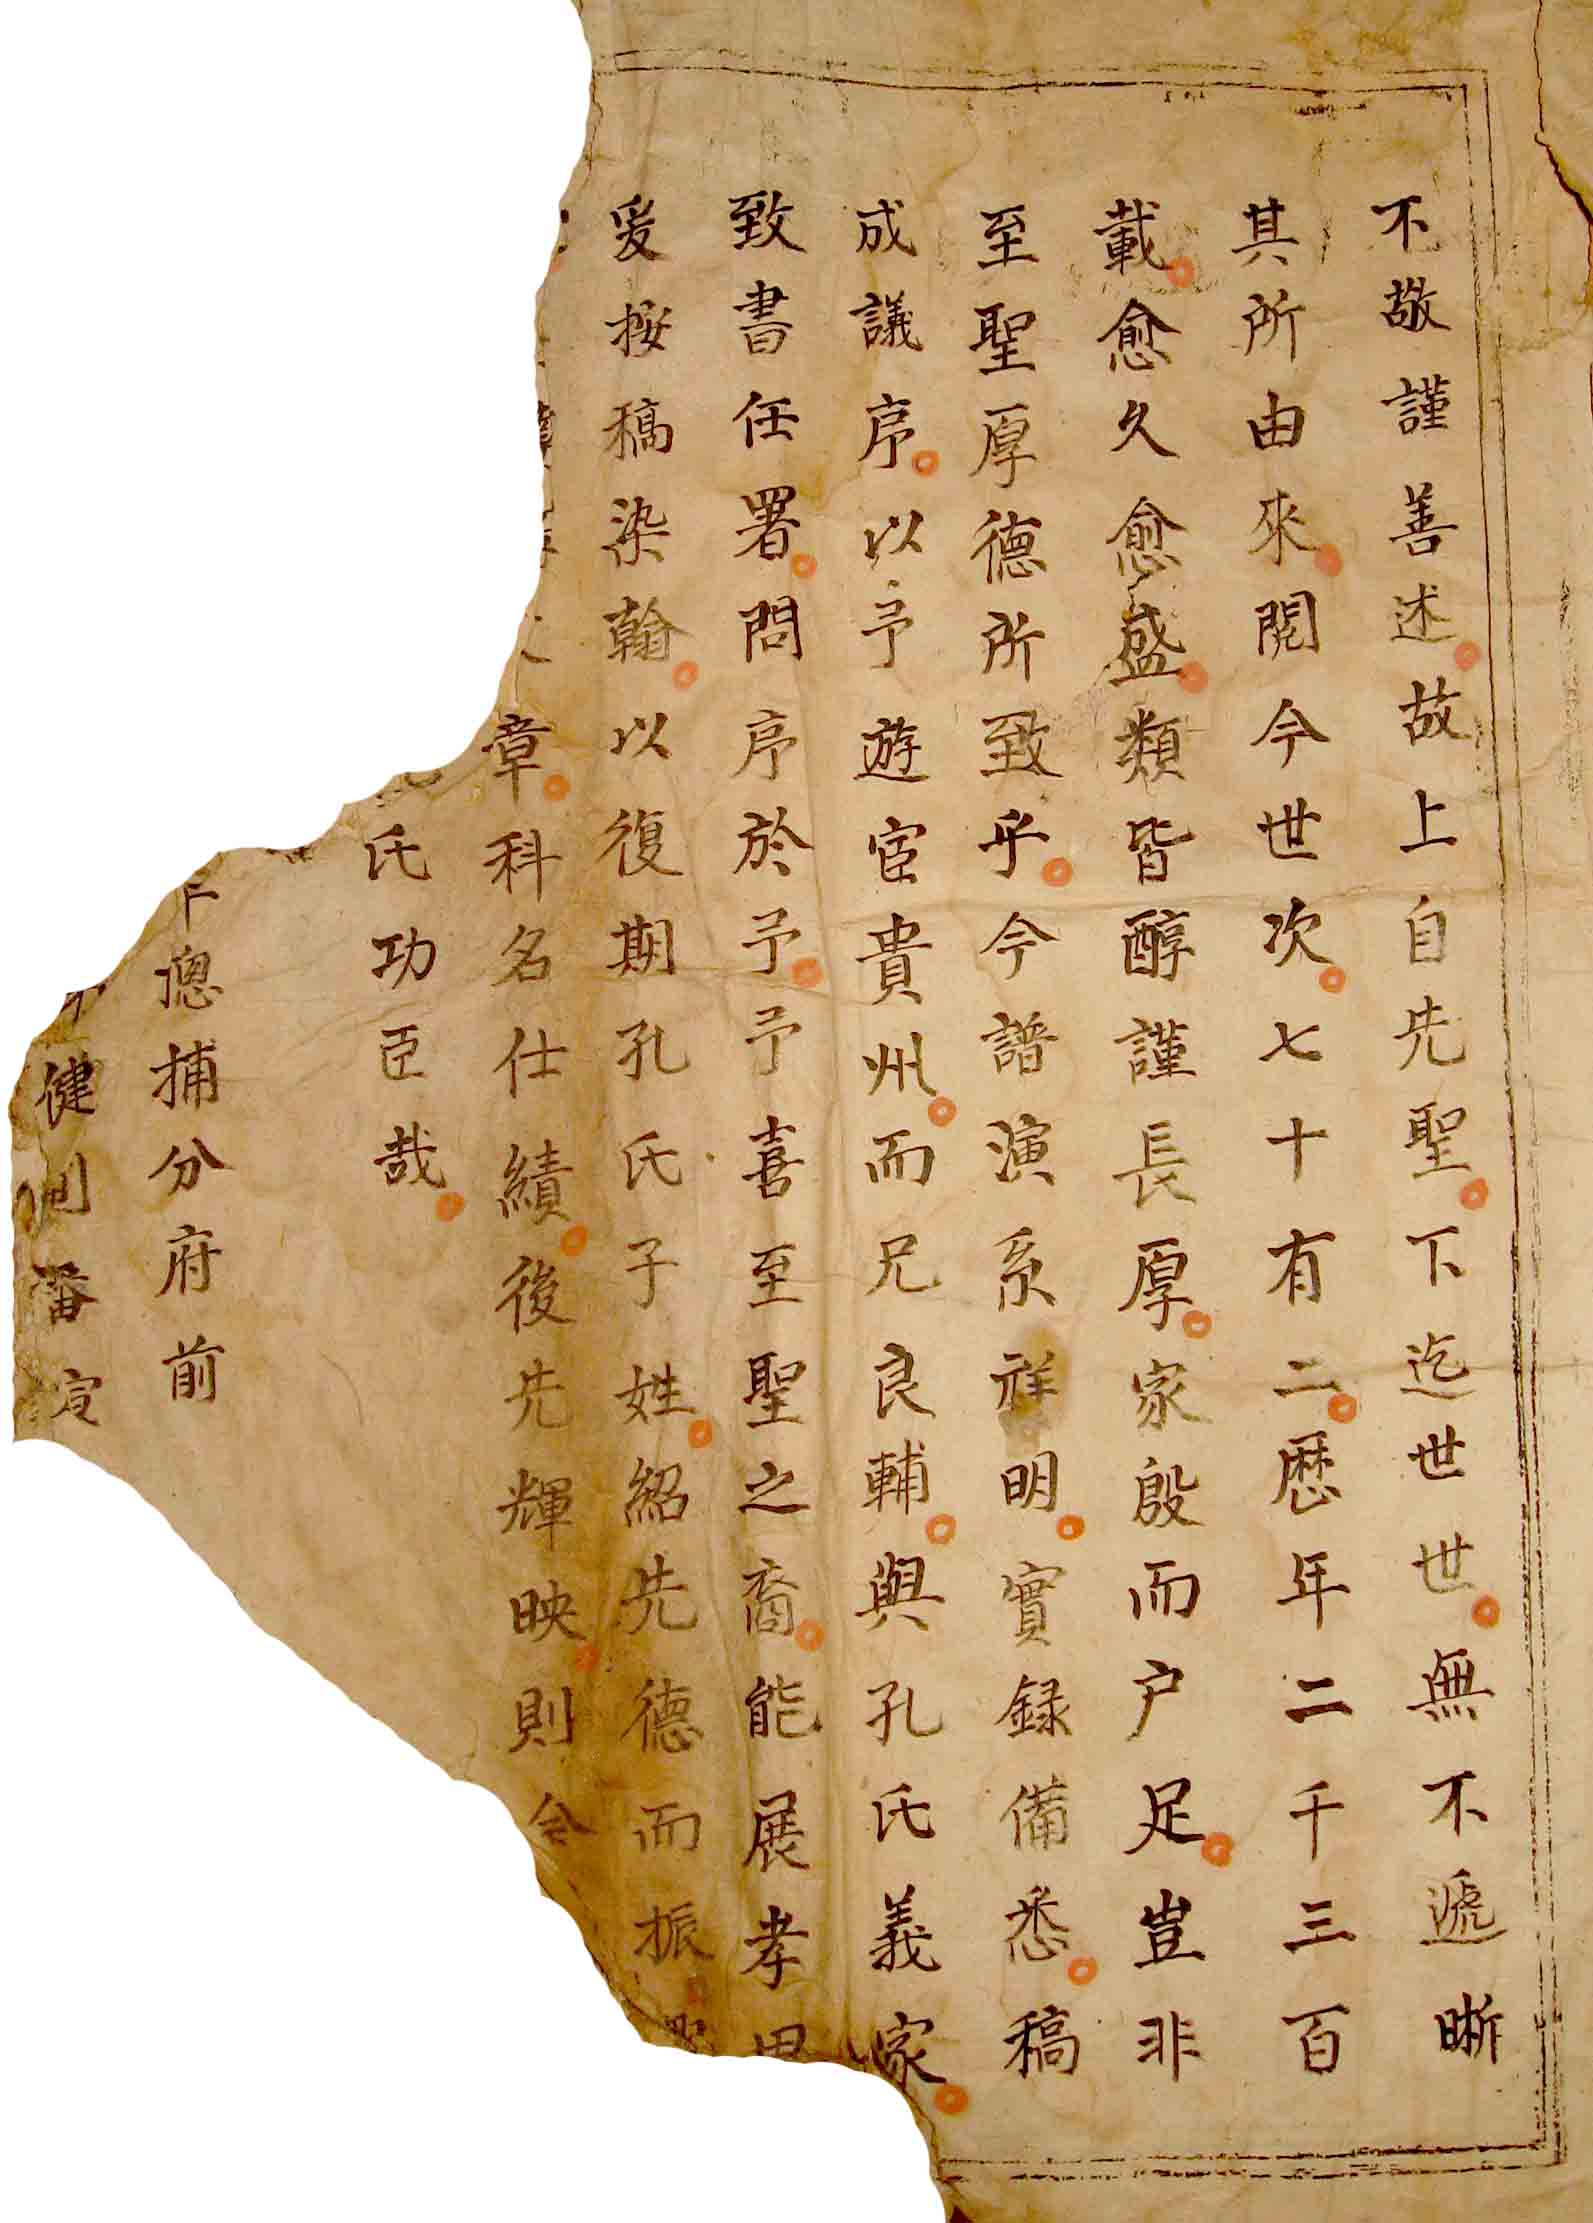 不敬謹善述故上自先聖下迄世世無不遞晰
其所由來閱今世次七十有二厯年二千三百
載愈久愈盛類皆醇謹長厚家殷而户足豈非
至聖厚德所致乎今譜演系祥明實録備悉稿
成議序以予遊宦貴州而兄良輔與孔氏義家
致書任署問序於予予喜至聖之裔能展孝思
爰按稿染翰以復期孔氏子姓紹先德而振
章科名仕績後先輝映則令
氏功臣哉
總捕分府前
健
審宜